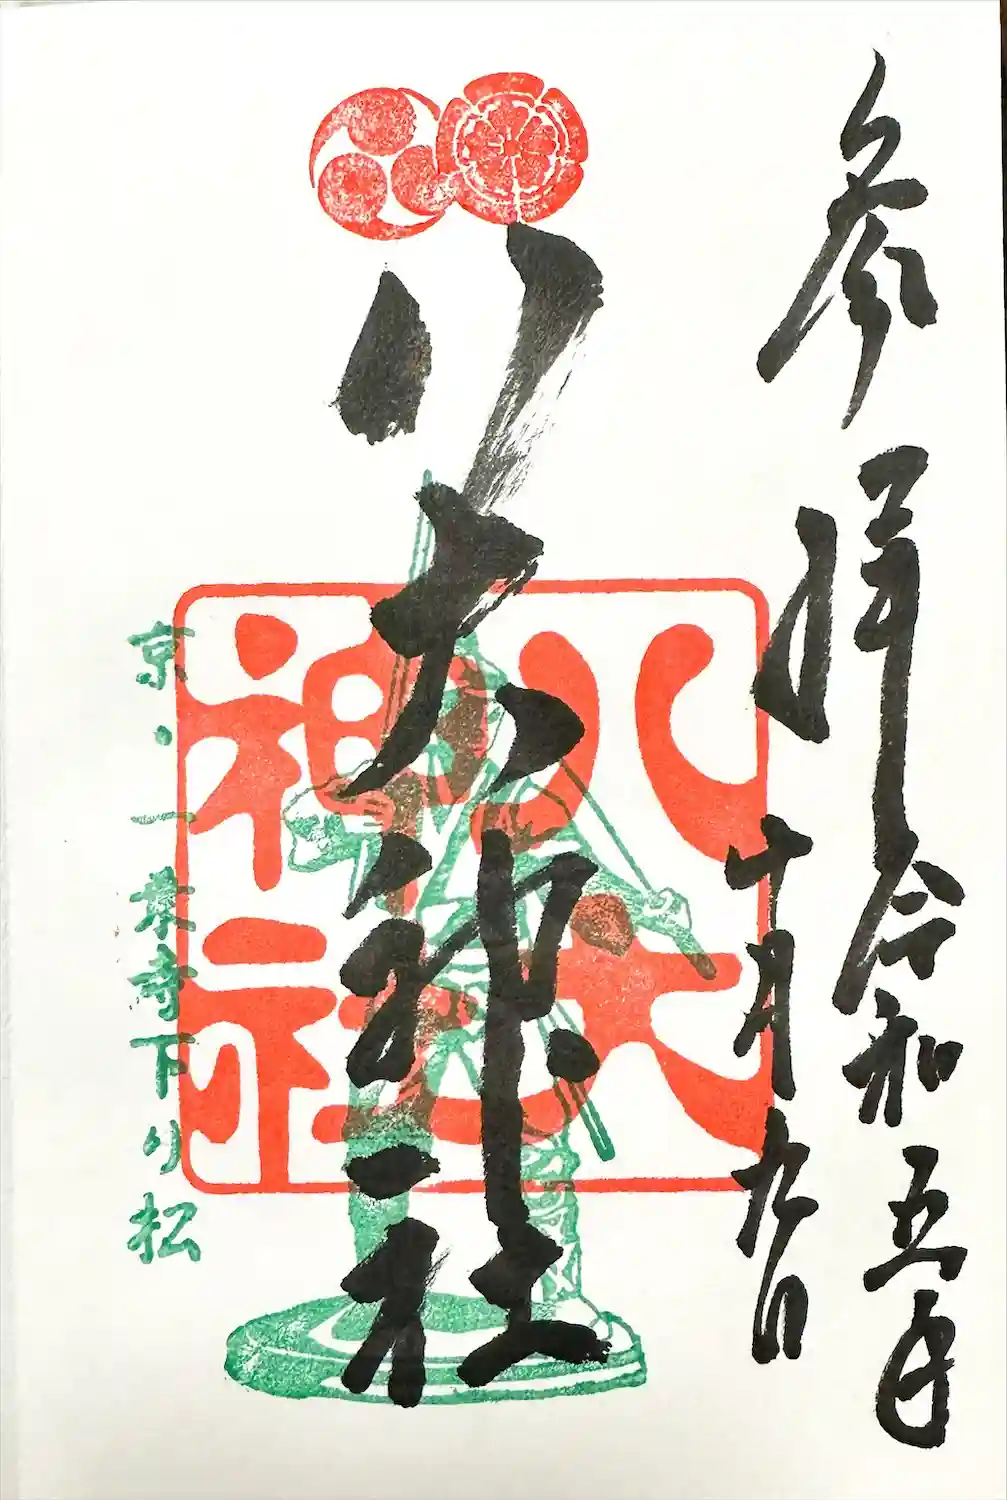 参拝
令和五年
十月九日
八大神社
八大
神社
京・一乗寺下り松